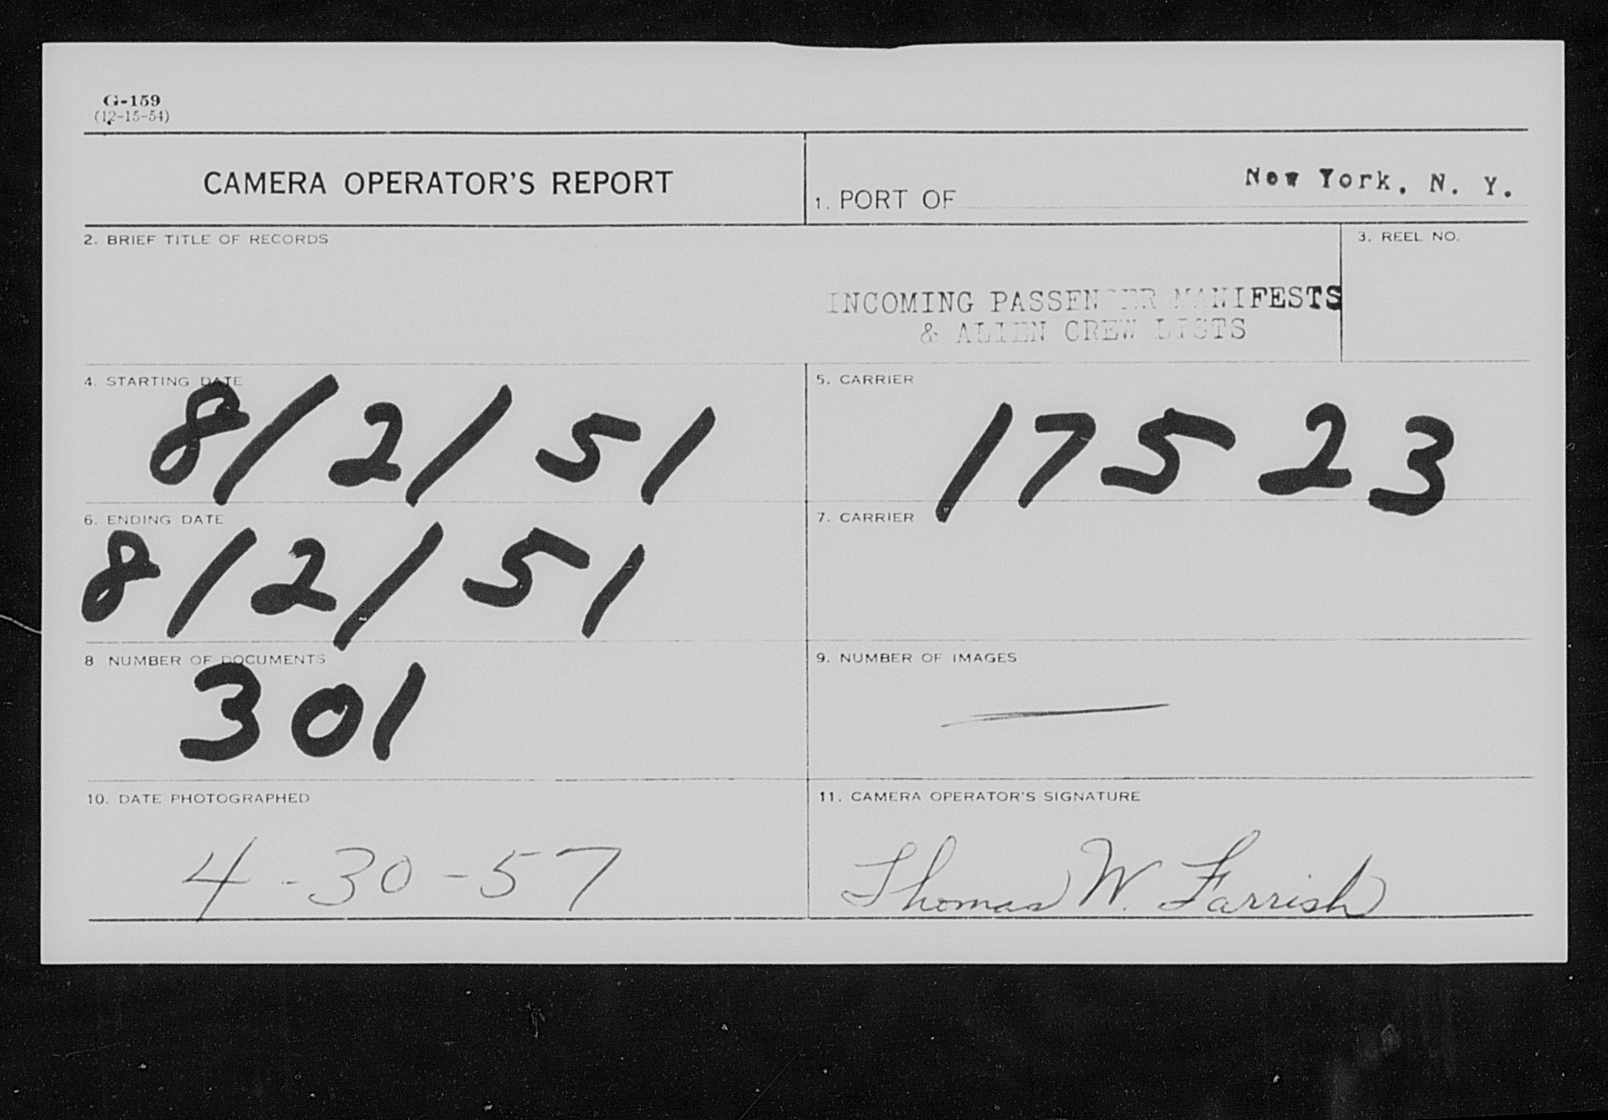 G-159
(12-15-54)
CAMERA OPERATOR'S REPORT
1. PORT OF New York, N. Y.
2. BRIEF TITLE OF RECORDS
3. REEL NO.
INCOMING PASSENGER MANIFESTS
& ALIEN CREW LISTS
4. STARTING DATE
8/2/51
5. CARRIER
17523
6. ENDING DATE
8/2/51
7. CARRIER
8 NUMBER OF DOCUMENTS
301
9. NUMBER OF IMAGES
—
10. DATE PHOTOGRAPHED
4-30-57
11. CAMERA OPERATOR'S SIGNATURE
Thomas W. Farrish